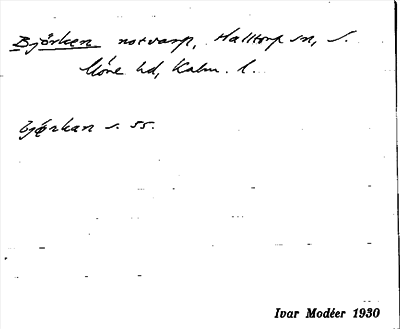 Björken notvarp, Halltorp sn, S.
Möre hd, Kalm. l.
Björkan s. 55.
Ivar Modéer 1930